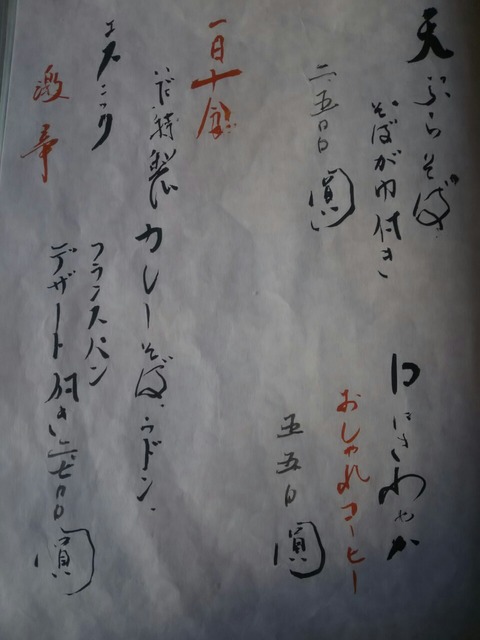 天ぷらそば
そばがゆ付き
二五〇〇圓
口にさわやか
おしゃれコーヒー
五五〇圓
一日十食
特製カレーそば、ウドン.
エスニック
激辛
フランスパン
デザート付き 二七〇〇圓